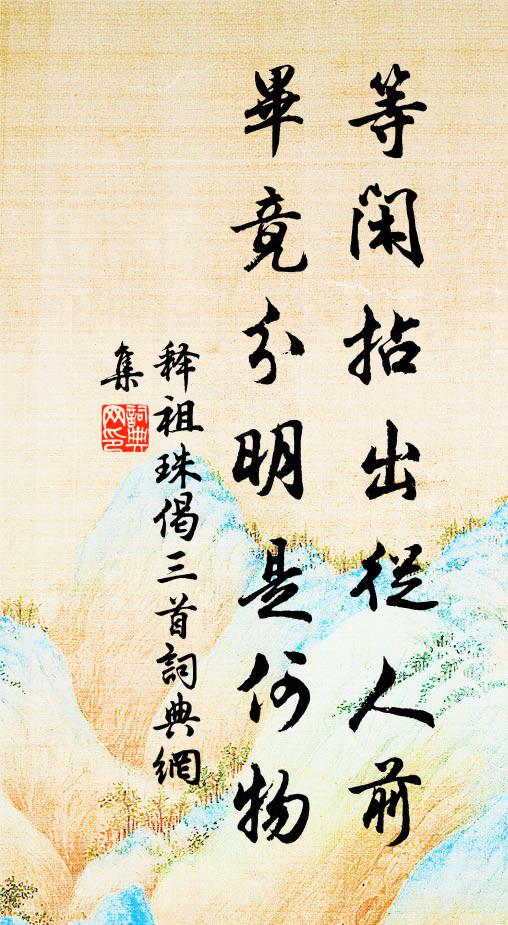 等閑拈出從人前
畢竟分明是何物
释祖珠偈三首詞典網
集
詞典网印